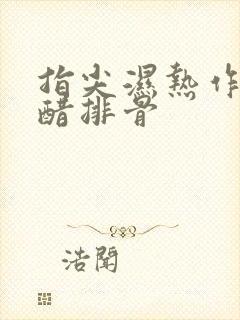 指尖濕熱作
醋排骨
浩聞